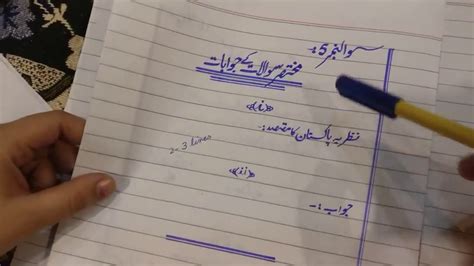 سوالنمبر 5:-
مختصر سوالات کے جوابات
نظریہ پاکستان کا مقصد:-
2-3 lines
جواب:-